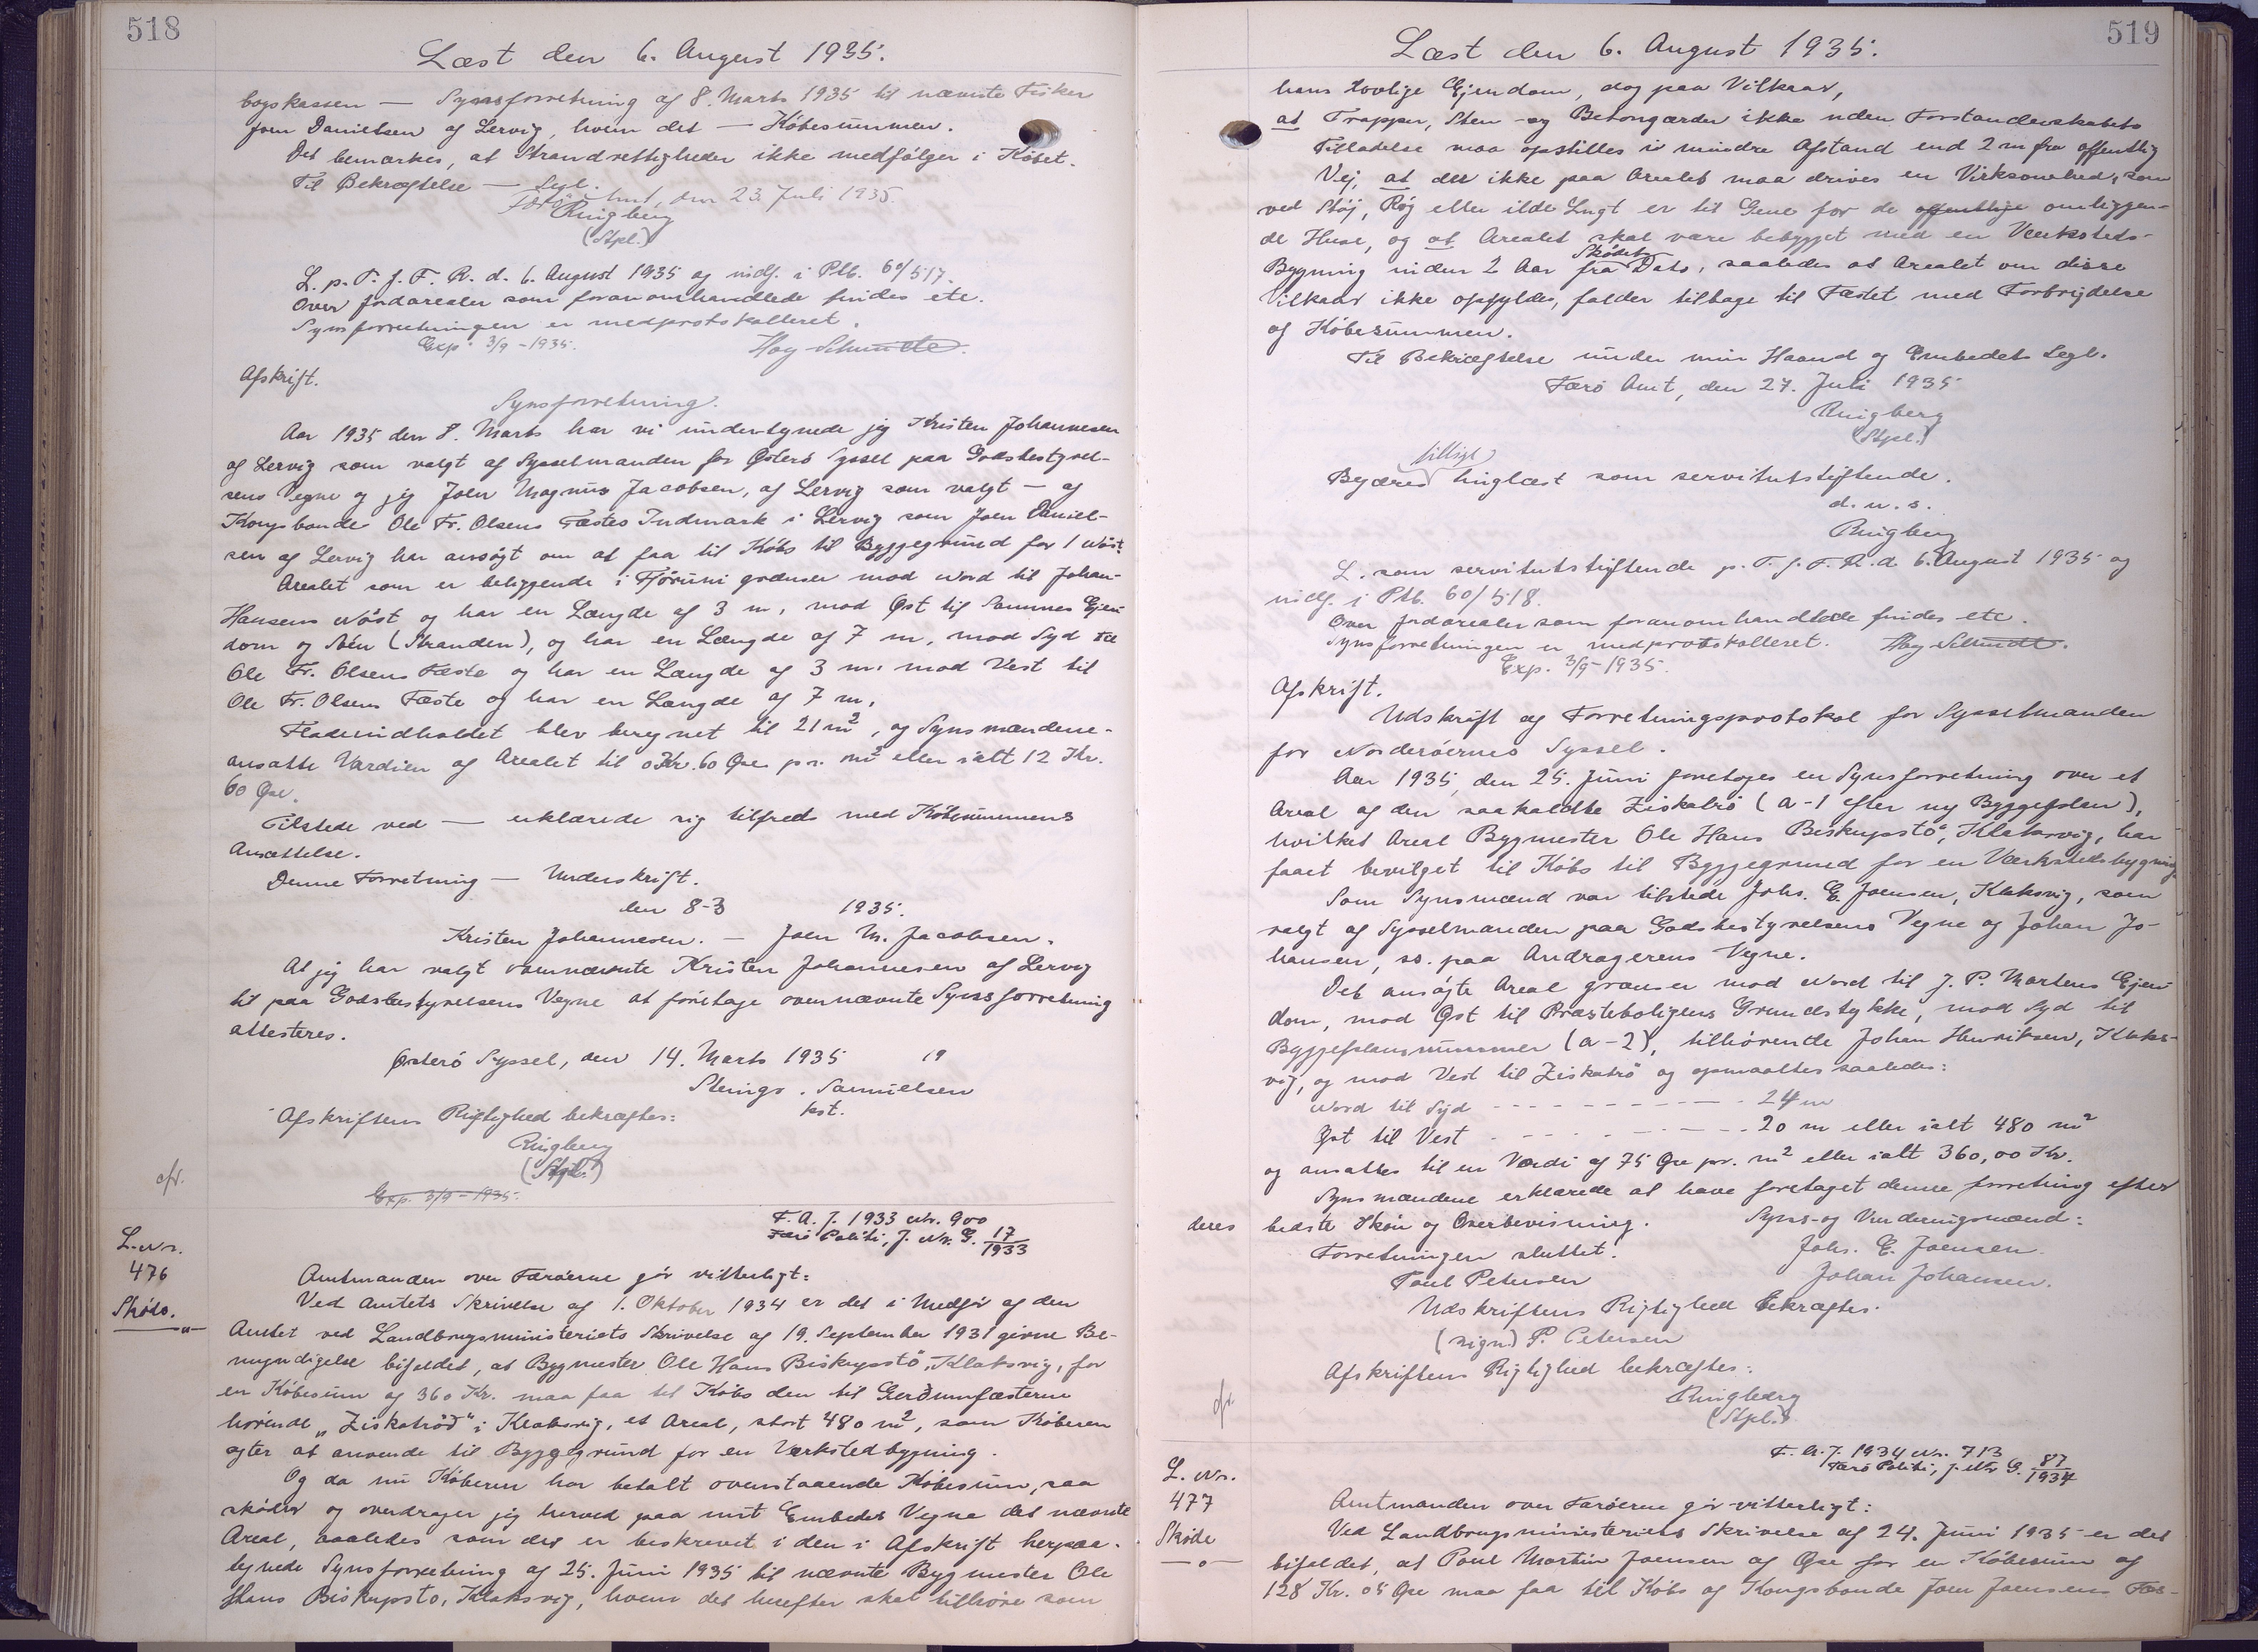 518
Læst den 6. August 1935.
bogskassen — Synsforretning af 8. Marts 1935 til nævnte Fisker
Joen Danielsen af Lervig, hvem det — Købesummen.
Det bemærkes, at Strandrettigheder ikke medfølger i Købet.
Til Bekræftelse — Segl.
Færø Amt, den 23. Juli 1935.
Ringberg
(Stpl.)
L. p. T. f. F. R. d. 6. August 1935 og indf. i Ptb. 60/517.
Over Jordarealer som foranomhandlede findes etc.
Synsforretningen er medprotokolleret.
Exp. 3/9-1935.
Afskrift.
Synsforretning.
Aar 1935 den 8. Marts har vi undertegnede jeg Kristen Johannesen
af Lervig som valgt af Sysselmanden for Østerø Syssel paa Godsbestyrel-
sens Vegne og jeg Joen Magnus Jacobsen, af Lervig som valgt — af
Kongsbonde Ole Fr. Olsens Fæstes Indmark i Lervig som Joen Daniel-
sen af Lervig har ansøgt om at faa til Købs til Byggegrund for 1 Nøst.
Arealet som er beliggende i Fjöruni grænser mod Nord til Johan-
Hansens Nøst og har en Længde af 3 m, mod Øst til Sammes Ejen
dom og Søen (Stranden), og har en Længde af 7 m, mod Syd til
Ole Fr. Olsens Fæste og har en Længde af 3 m. mod Vest til
Ole Fr. Olsens Fæste og har en Længde af 7 m.
Fladeindholdet blev beregnet til 21 m², og Synsmændene-
ansatte Værdien af Arealet til 0 Kr. 60 Øre pr. m² eller ialt 12 Kr.
60 Øre.
Tilstede ved — erklærede sig tilfreds med Købesummens
Ansættelse.
Denne Forretning — Underskrift.
den 8-3 1935.
Kristen Johannesen. — Joen M. Jacobsen.
At jeg har valgt ovennævnte Kristen Johannesen af Lervig
til paa Godsbestyrelsens Vegne at foretage ovennævnte Synsforretning
attesteres.
Østerø Syssel, den 14. Marts 1935 19
Samuelsen
kst.
Afskriftens Rigtighed bekræftes:
Ringberg
(Stpl.)
Exp. 3/9-1935.
cfr.
F. A. J. 1933 Nr. 900
Færø Politi, J. Nr. G. 17/1933
L. Nr.
476
Skøde.
Amtmanden over Færøerne gør vitterligt:
Ved Amtets Skrivelse af 1. Oktober 1934 er det i Medfør af den
Amtet ved Landbrugsministeriets Skrivelse af 19. September 1931 givne Be-
myndigelse bifaldet, at Bygmester Ole Hans Biskupstö, Klaksvig, for
en Købesum af 360 Kr. maa faa til Købs den til Gerðumfæsterne
hørende „Ziskatrøð“ i Klaksvig, et Areal, stort 480 m², som Køberen
agter at anvende til Byggegrund for en Værkstedbygning.
Og da nu Køberen har betalt ovenstaaende Købesum, saa
skøder og overdrager jeg herved paa mit Embedes Vegne det nævnte
Areal, saaledes som det er beskrevet i den i Afskrift herpaa-
tegnede Synsforretning af 25. Juni 1935 til nævnte Bygmester Ole
Hans Biskupsto, Klaksvig, hvem det herefter skal tilhøre som
519
Læst den 6. August 1935.
hans lovlige Ejendom, dog paa Vilkaar,
at Trapper, Sten- og Betongærder ikke uden Forstanderskabets
Tilladelse maa opstilles i mindre Afstand end 2 m fra offentlig
Vej, at der ikke paa Arealet maa drives en Virksomhed, som
ved Støj, Røg eller ilde Lugt er til Gene for de offentlige omliggen-
de Huse, og at Arealet skal være bebygget med en Værksteds-
Bygning inden 2 Aar fra Skødets Dato, saaledes at Arealet om disse
Vilkaar ikke opfyldes, falder tilbage til Fæstet med Fortrydelse
af Købesummen.
Til Bekræftelse under min Haand og Embedets Segl.
Færø Amt, den 27. Juli 1935
Ringberg
(Stpl.)
Begæres tillige tinglæst som servitutstiftende.
d. u. s.
Ringberg
L. som servitutstiftende p. T. f. F. R. d. 6. August 1935 og
indf. i Ptb. 60/518.
Over Jordarealer som foranomhandlede findes etc.
Synsforretningen er medprotokolleret.
Exp. 3/9-1935.
Afskrift.
Udskrift af Forretningsprotokol for Sysselmanden
for Norderøernes Syssel.
Aar 1935, den 25. Juni foretoges en Synsforretning over et
Areal af den saakaldte Ziskatrö (a-1 efter ny Byggeplan),
hvilket Areal Bygmester Ole Hans Biskupstö, Klaksvig, har
faaet bevilget til Købs til Byggegrund for en Værkstedsbygning.
Som Synsmænd var tilstede Johs. E. Joensen, Klaksvig, som
valgt af Sysselmanden paa Godsbestyrelsens Vegne og Johan Jo-
hansen, ss. paa Andragerens Vegne.
Det ansøgte Areal grænser mod Nord til J. P. Mortens Ejen-
dom, mod Øst til Præsteboligens Grundstykke, mod Syd til
Byggeplansnummer (a-2), tilhørende Johan Henriksen, Klaks-
vig, og mod Vest til Ziskatrö og opmaaltes saaledes:
Nord til Syd - - - - - - - - - 24 m
Øst til Vest - - - - - - - - - 20 m eller ialt 480 m²
og ansattes til en Værdi af 75 Øre pr. m² eller ialt 360,00 Kr.
Synsmændene erklærede at have foretaget denne forretning efter
deres bedste Skøn og Overbevisning.
Syns- og Vurderingsmænd:
Forretningen sluttet.
Johs. E. Joensen.
Poul Petersen
Johan Johansen.
Udskriftens Rigtighed bekræftes.
(sign) P. Petersen
Afskriftens Rigtighed bekræftes:
Ringberg
(Stpl.)
cfr.
F. A. J. 1934 Nr. 713
Færø Politi, J. Nr. G. 87/1934
L. Nr.
477
Skøde
Amtmanden over Færøerne gør vitterligt:
Ved Landbrugsministeriets Skrivelse af 24. Juni 1935 er det
bifaldet, at Poul Martin Joensen af Øre for en Købesum af
128 Kr. 05 Øre maa faa til Købs af Kongsbonde Joen Joensens Fæs-